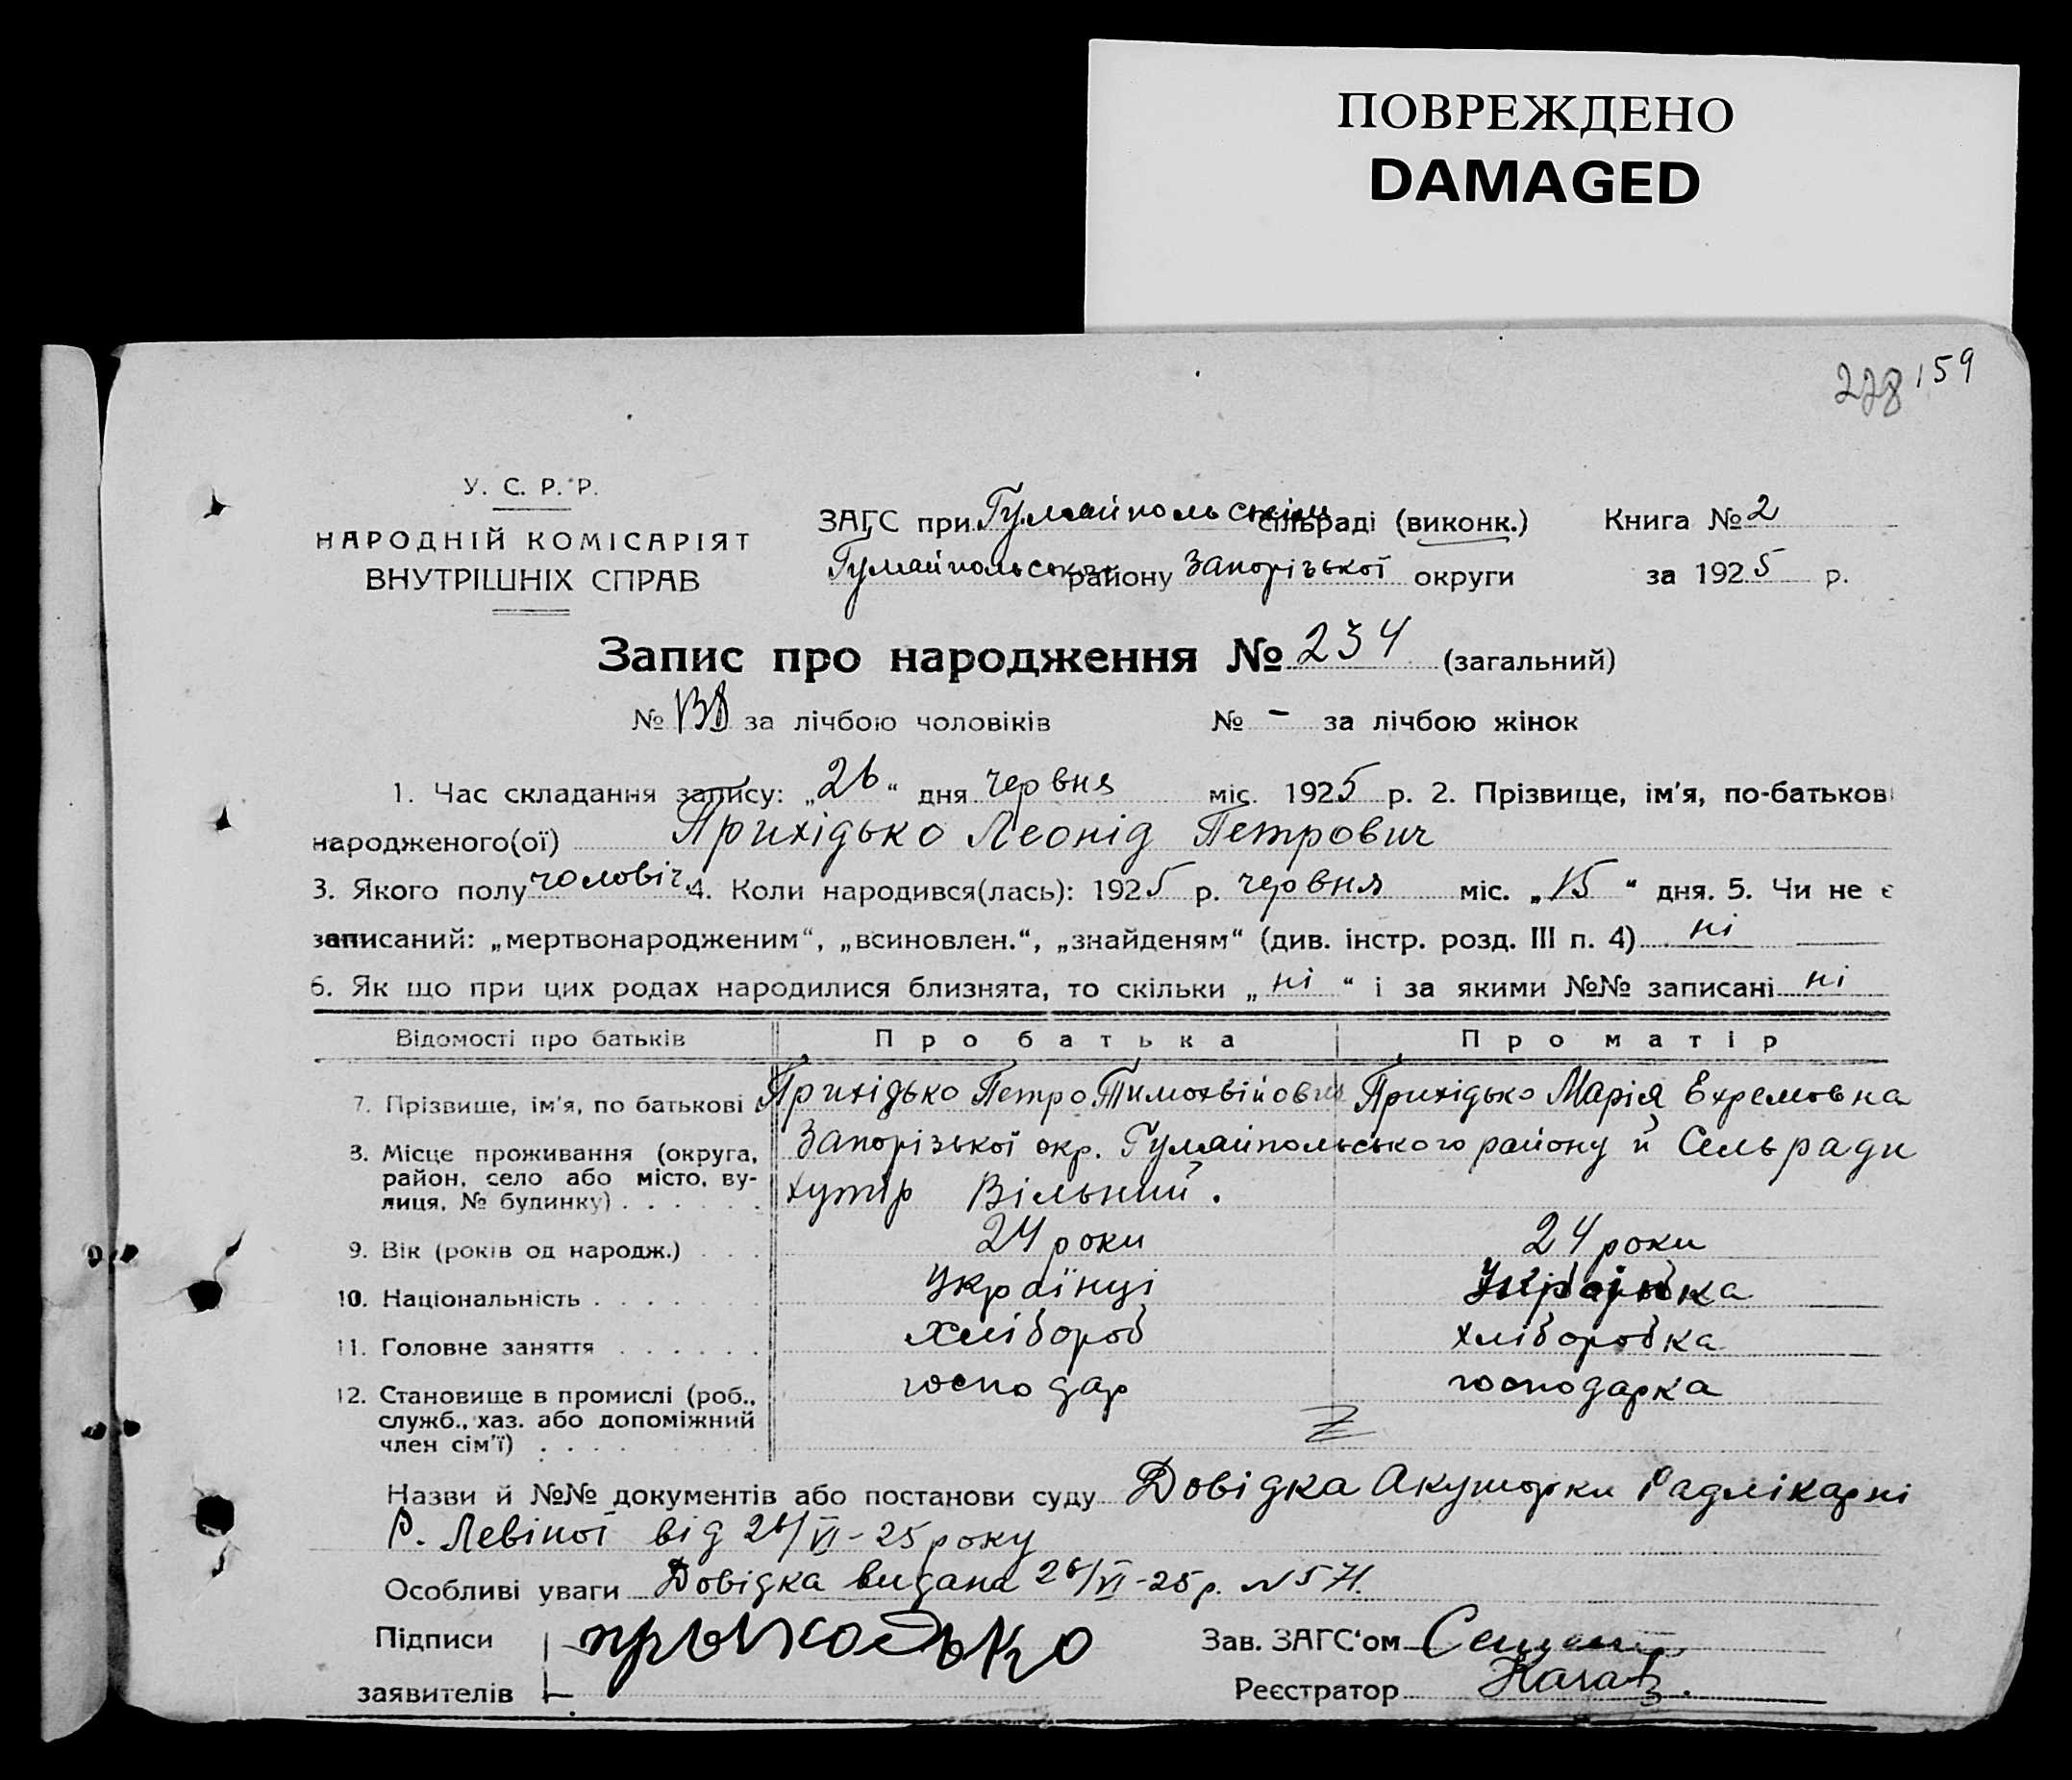 ПОВРЕЖДЕНО
DAMAGED
228 159
У. С. Р. Р.
НАРОДНІЙ КОМІСАРІЯТ
ВНУТРІШНІХ СПРАВ
ЗАГС при Гуляйпольським сільраді (виконк.) Книга № 2
Гуляйпольського району Запорізької округи за 1925 р.
Запис про народження № 234 (загальний)
№ 138 за лічбою чоловіків № - за лічбою жінок
1. Час складання запису: „26“ дня червня міс. 1925 р. 2. Прізвище, ім'я, по-батькові
народженого(ої) Прихідько Леонід Петрович
3. Якого полу чоловіч. 4. Коли народився(лась): 1925 р. червня міс. „15“ дня. 5. Чи не є
записаний: „мертвонародженим“, „всиновлен.“, „знайденям“ (див. інстр. розд. III п. 4) ні
6. Як що при цих родах народилися близнята, то скільки „ні“ і за якими №№ записані ні
Відомості про батьків Про батька Про матір
7. Прізвище, ім'я, по батькові Прихідько Петро Тимохвійович Прихідько Марія Ехремовна
8. Місце проживання (округа, район, село або місто, вулиця, № будинку) Запорізької окр. Гуляйпольського району й Сельради
хутір Вільний.
9. Вік (років од народж.) 24 роки 24 роки
10. Національність Українці Українка
11. Головне заняття хлібороб хліборобка
12. Становище в промислі (роб., служб., хаз. або допоміжний член сім'ї) господар господарка
Назви й №№ документів або постанови суду Довідка Акушорки Радлікарні
Р. Левіної від 26/VI-25 року
Особливі уваги Довідка видана 26/VI-25 р. N 571.
Підписи прыходько Зав. ЗАГС'ом
заявителів Реєстратор